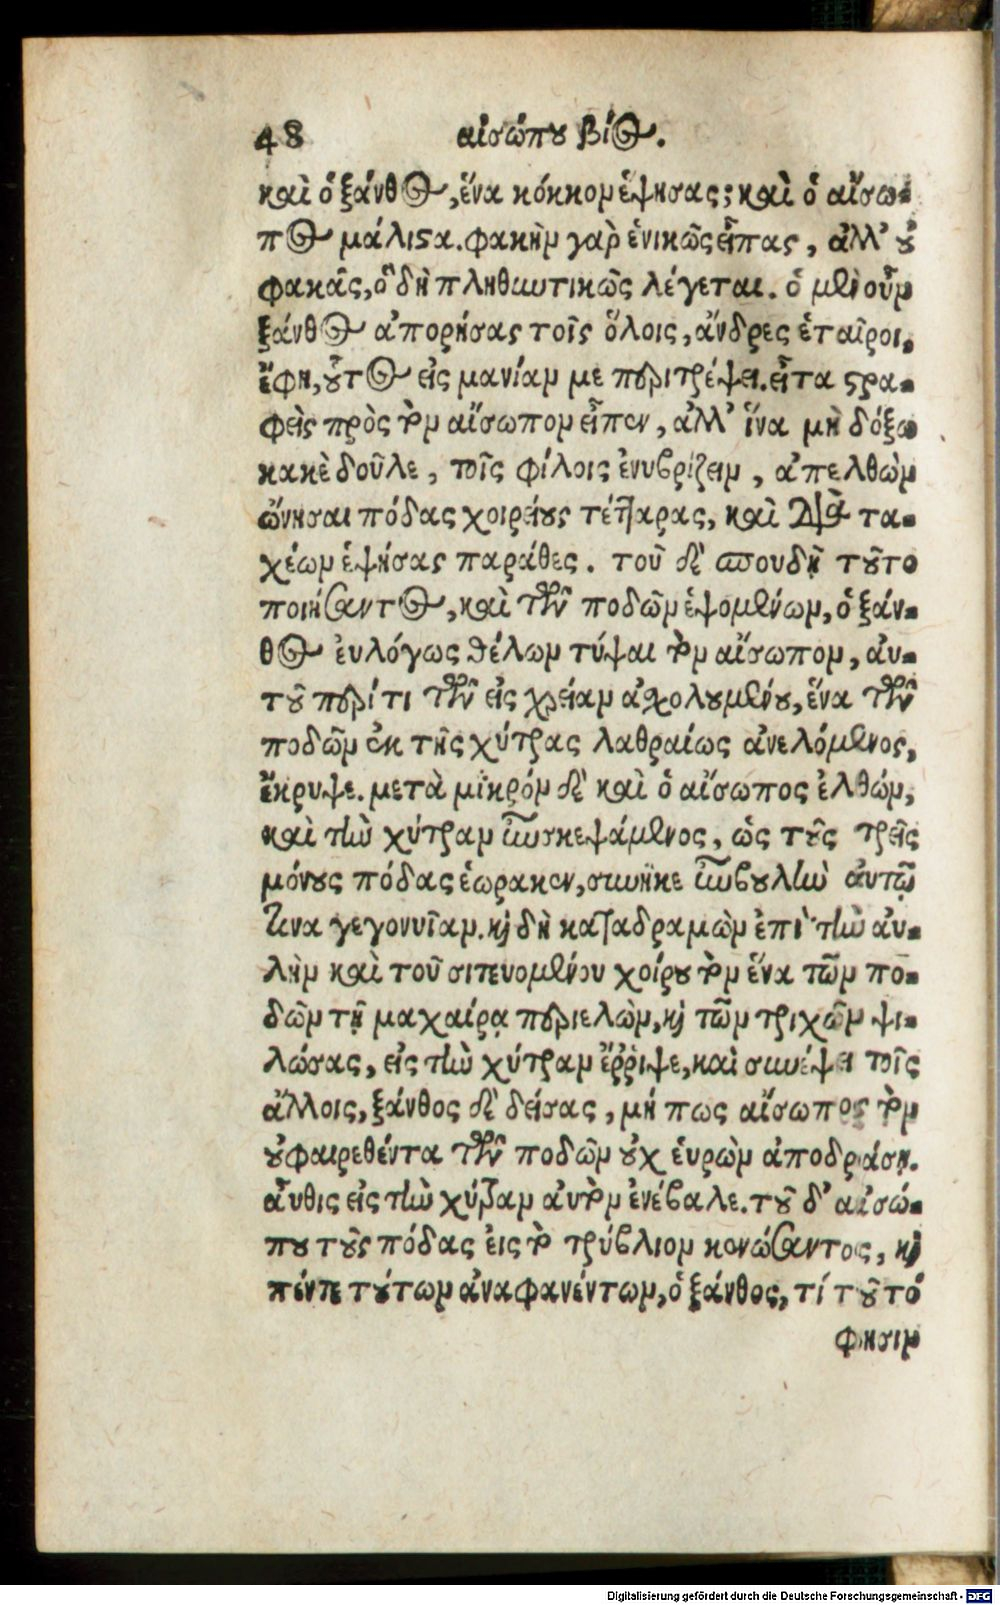 48 αἰσώπου βίος.
καὶ ὁ ξάνθος, ἕνα κόκκον ἕψησας; καὶ ὁ αἴσω-
πος μάλιστα. φακὴν γὰρ ἑνικῶς εἶπας, ἀλλ' οὐ
φακᾶς, ὃ δὴ πληθωτικῶς λέγεται. ὁ μὲν οὖν
ξάνθος ἀπορήσας τοῖς ὅλοις, ἄνδρες ἑταῖροι,
ἔφη, οὗτος εἰς μανίαν με περιτρέψει. εἶτα στρα-
φεὶς πρὸς τὸν αἴσωπον εἶπεν, ἀλλ' ἵνα μὴ δόξω
κακὲ δοῦλε, τοῖς φίλοις ἐνυβρίζειν, ἀπελθὼν
ὤνησαι πόδας χοιρείους τέτταρας, καὶ διὰ τα-
χέων ἑψήσας παράθες. τοῦ δὲ σπουδῇ τοῦτο
ποιήσαντος, καὶ τῶν ποδῶν ἑψομένων, ὁ ξάν-
θος ἐυλόγως θέλων τύψαι τὸν αἴσωπον, ἀυ-
τοῦ περί τι τῶν εἰς χρείαν ἀσχολουμένου, ἕνα τῶν
ποδῶν ἐκ τῆς χύτρας λαθραίως ἀνελόμενος,
ἔκρυψε. μετὰ μικρὸν δὲ καὶ ὁ αἴσωπος ἐλθών,
καὶ τὴν χύτραν ἐπισκεψάμενος, ὡς τοὺς τρεῖς
μόνους πόδας ἑώρακεν, συνῆκε ἐπιβουλὴν ἀυτῷ
τινα γεγονυῖαν. καὶ δὴ καταδραμὼν ἐπὶ τὴν ἀυ-
λὴν καὶ τοῦ σιτευομένου χοίρου τὸν ἕνα τῶν πο-
δῶν τῇ μαχαίρᾳ περιελὼν, καὶ τῶν τριχῶν ψι-
λώσας, εἰς τὴν χύτραν ἔῤῥιψε, καὶ συνέψει τοῖς
ἄλλοις, ξάνθος δὲ δείσας, μή πως αἴσωπος τὸν
ὑφαιρεθέντα τῶν ποδῶν οὐχ ἑυρὼν ἀποδράσῃ.
ἀῦθις εἰς τὴν χύτραν ἀυτὸν ἐνέβαλε. τοῦ δ' αἰσώ-
που τοὺς πόδας ἐις τὸ τρύβλιον κενώσαντος, καὶ
πέντε τούτων ἀναφανέντων, ὁ ξάνθος, τί τοῦτό
φησιν
Digitalisierung gefördert durch die Deutsche Forschungsgemeinschaft - DFG